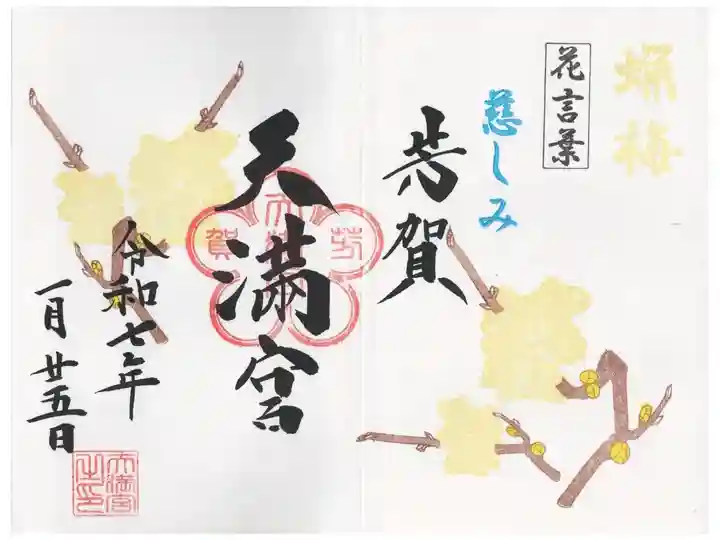 蝋梅
花言葉
慈しみ
芳賀
天満宮
令和七年
一月廿五日
芳賀
天満宮